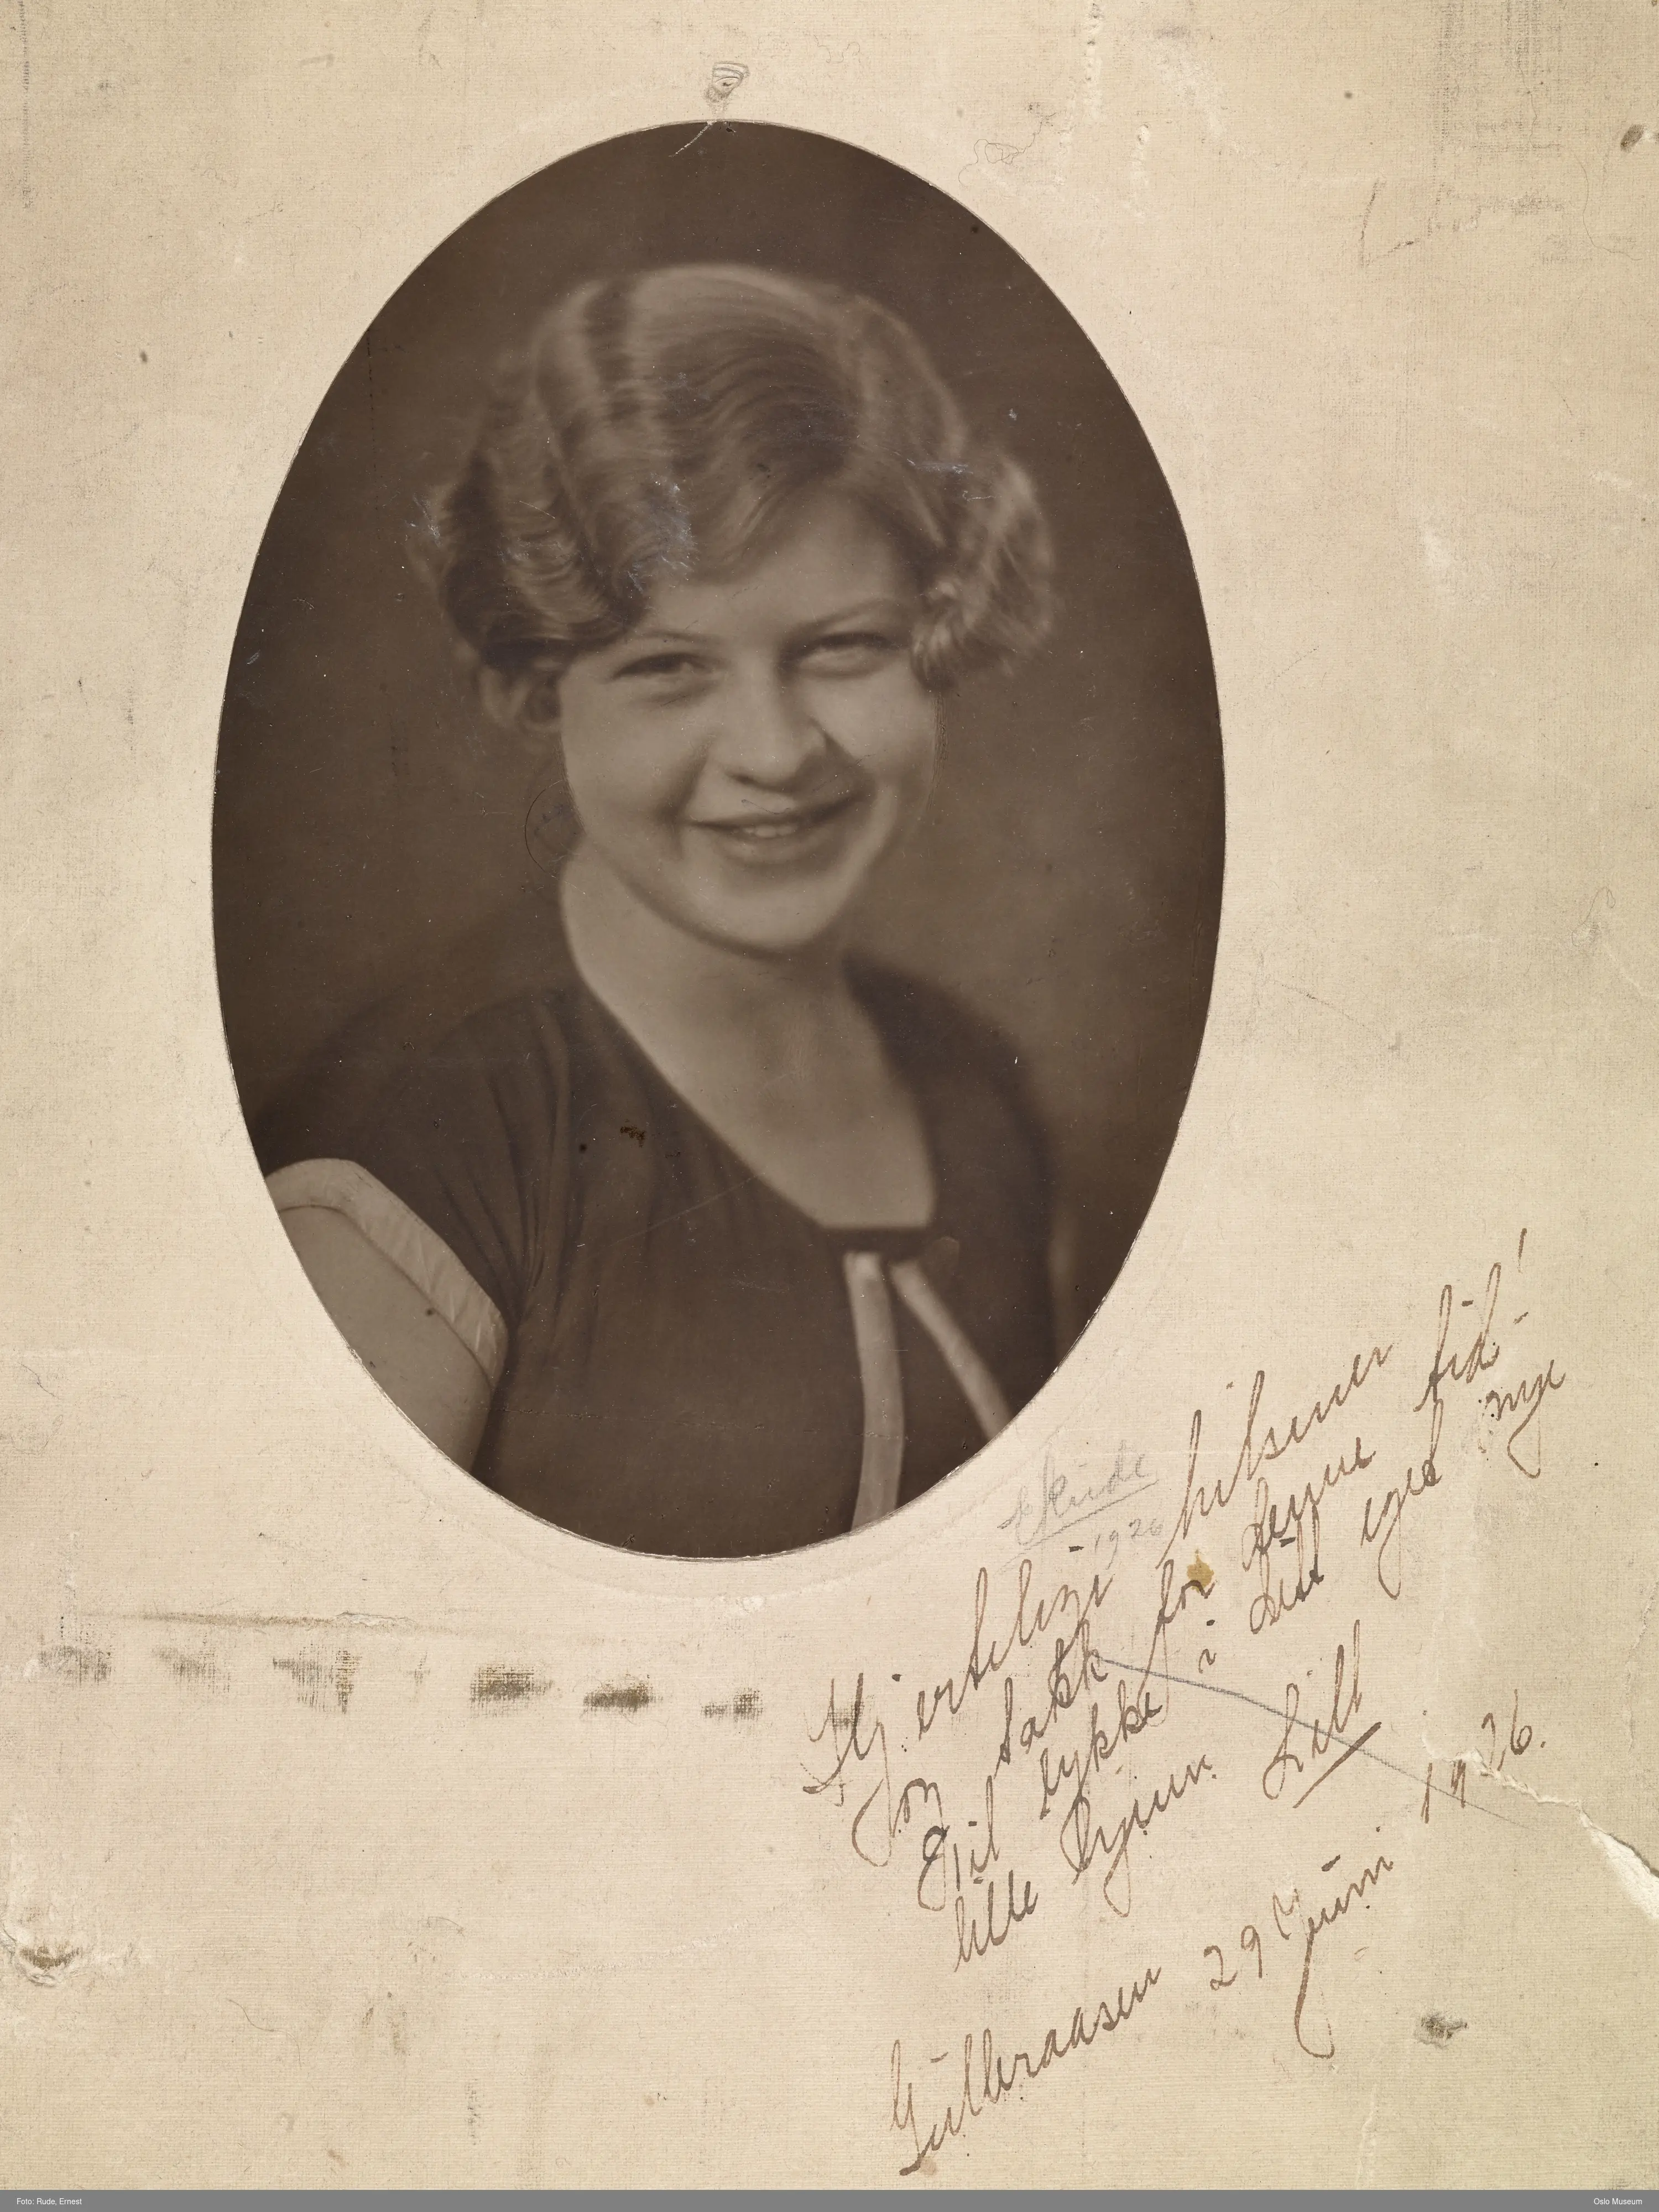 E Rude
1926
Hjerteligi hilsener
og takk for denne tid!
Gid lykke i ditt eget nye
lille hjem.
Lill
Gulleraasen 29 Juni 1926.
Foto: Rude, Ernest
Oslo Museum